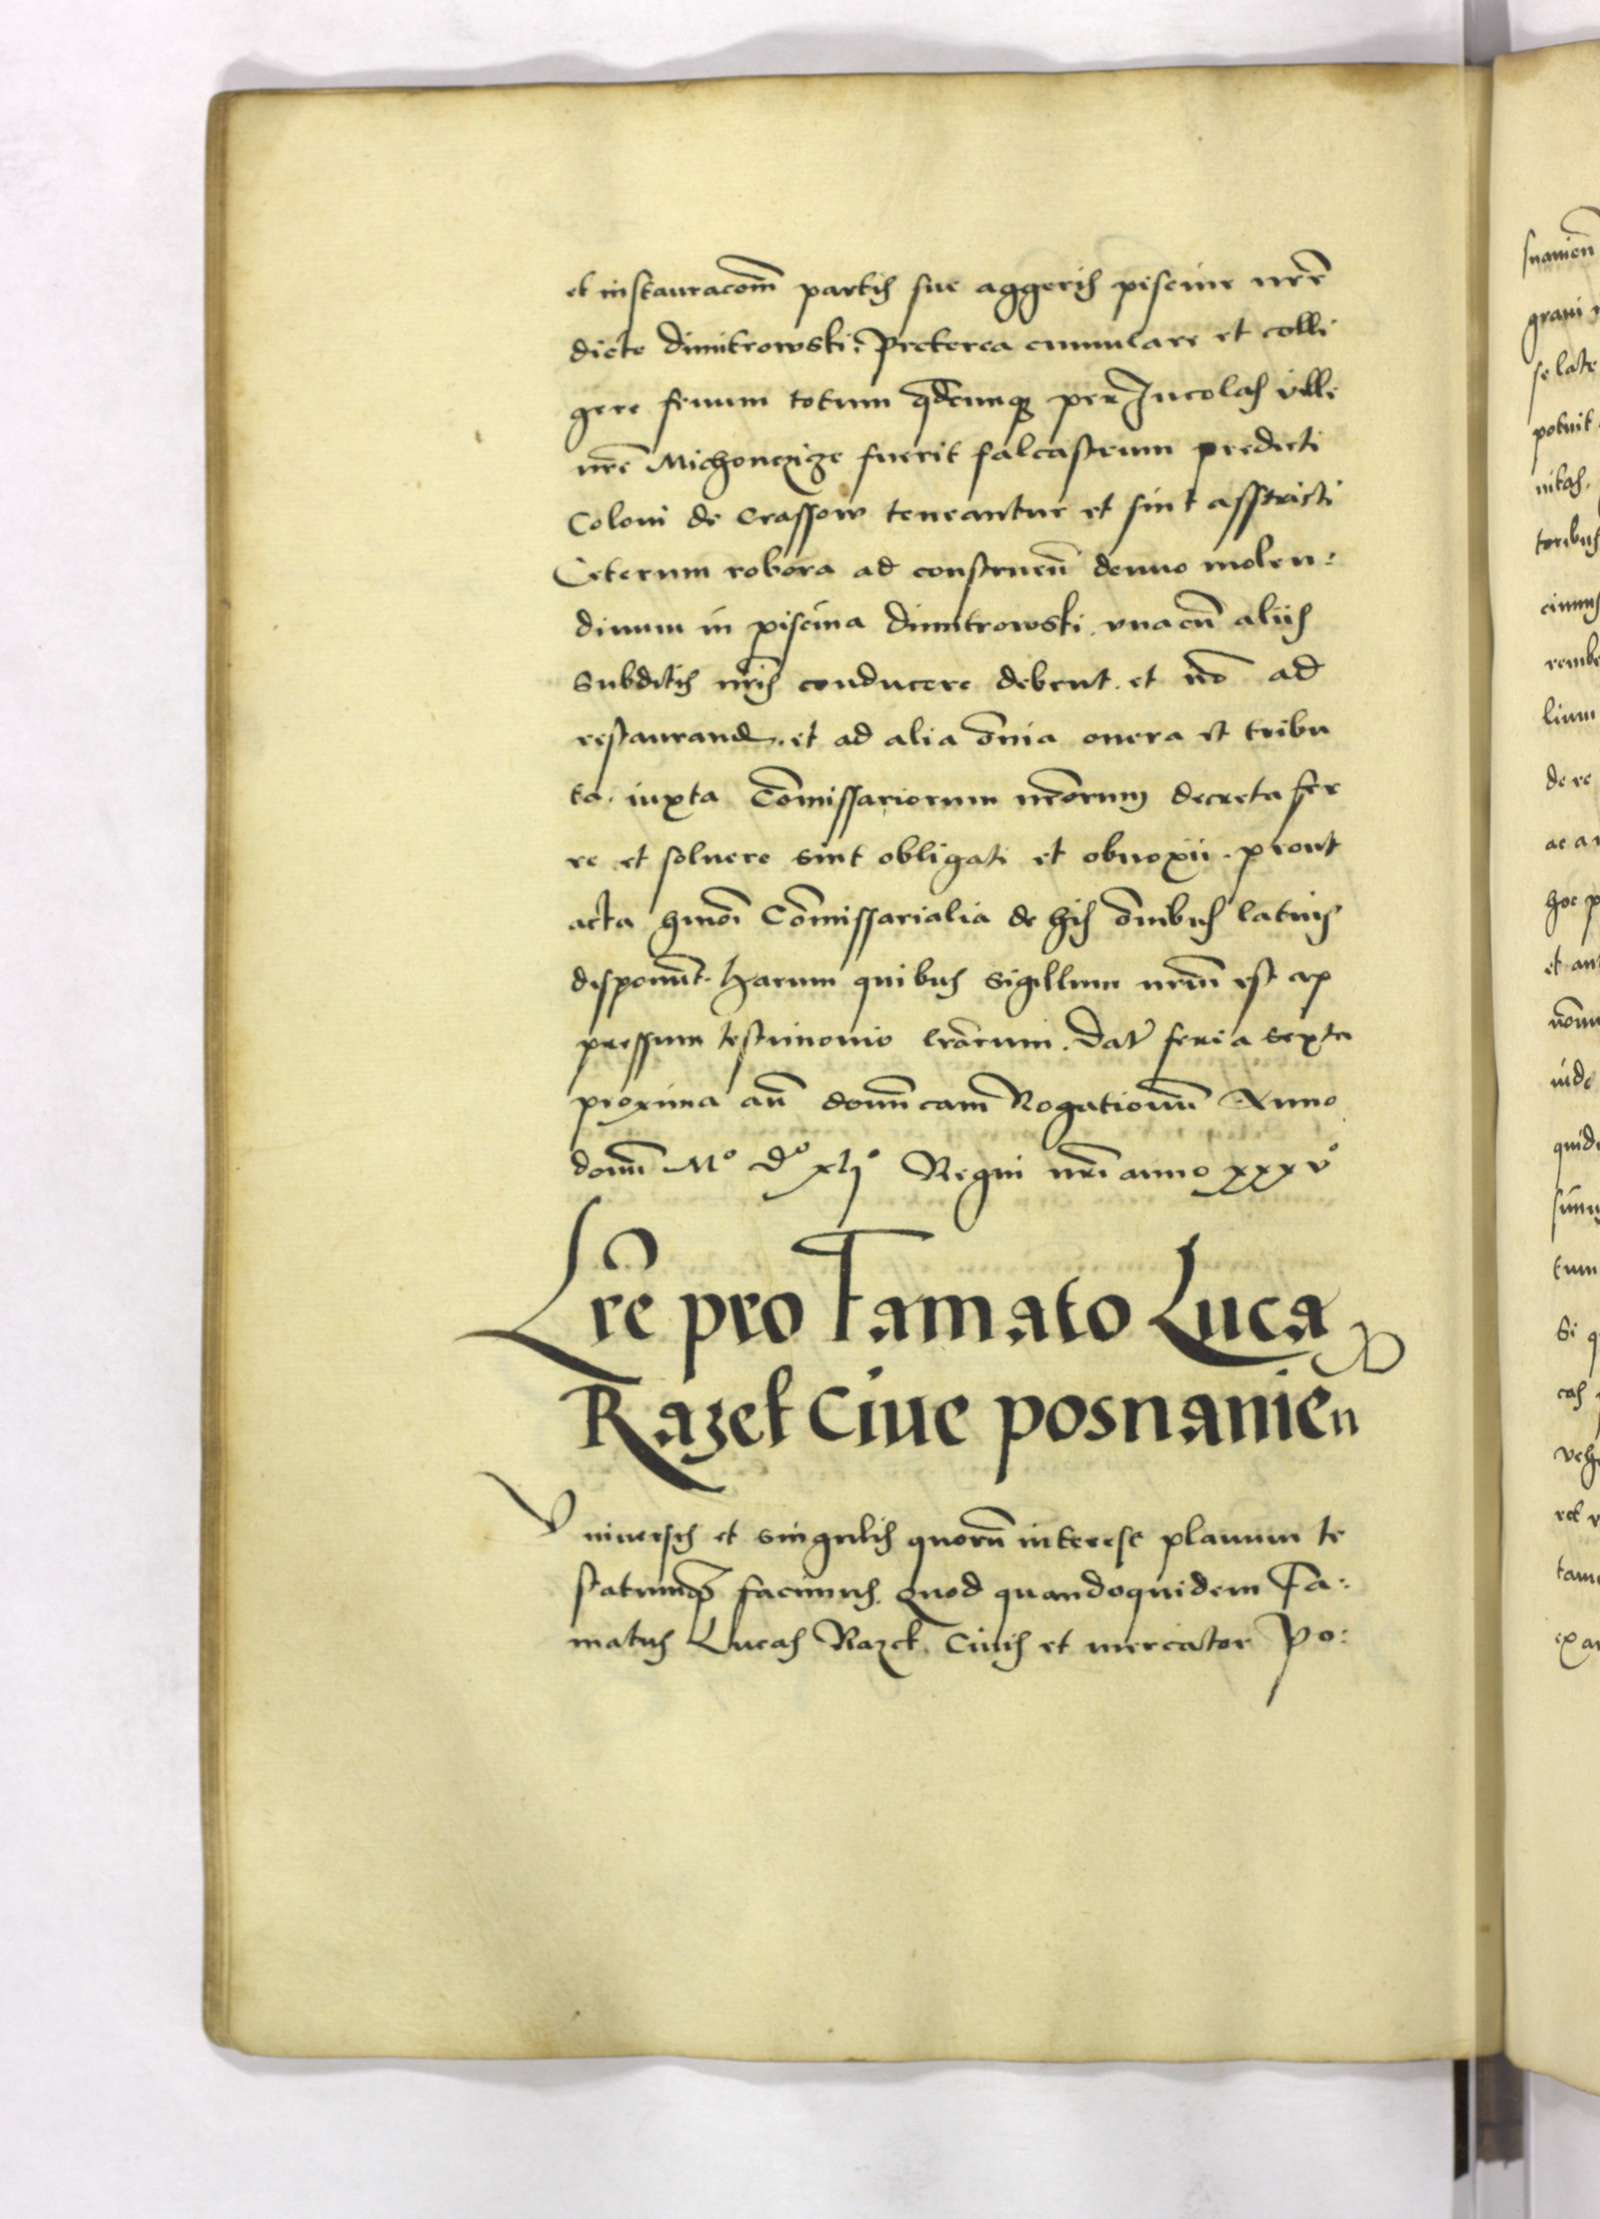 et instauracom̄ partis sue aggeris piscine nr̄e
dicte Dimitrowski. Preterea cumulare et colli
gere fenum totum qd̄cunqȝ per Incolas ville
nr̄e Michonczize fuerit falcastrum predicti
Coloni de Crassow teneantur et sint asstricti
Ceterum robora ad construen̄ denuo molen:
dinum in piscina Dimitrowski. vnacū aliis
Subditis nr̄is conducere debent. et n̄o ad
restaurand. et ad alia om̄ia onera et tribu
ta. iuxta Com̄issariorum nr̄orum decreta fer
re et soluere sint obligati et obnoxii. prout
acta hmōi Com̄issarialia de his om̄ibus latius
disponūt. Harum quibus Sigillum nr̄um est ap
pressum testimonio lr̄arum. Dat feria sexta
proxima an̄ domīcam Rogationū Anno
domī Mº dº xljº Regni nr̄i anno xxxvº
Lr̄e pro Famato Luca
Razek Ciue posnanien
Vniuersis et singulis quorū interest planum te
statumqȝ facimus. Quod quandoquidem Fa:
matus Lucas Razek Ciuis et mercator Po:
snanien̄
graui
se late
potuit
nitas.
toribus
cimus
lium
de re
ac a
hoc p
et an
inde
tum
Si q
cas
veh
tam
ex a